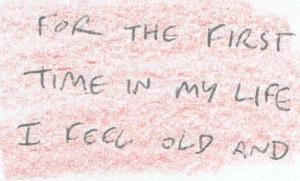 FOR THE FIRST
TIME IN MY LIFE
I FEEL OLD AND